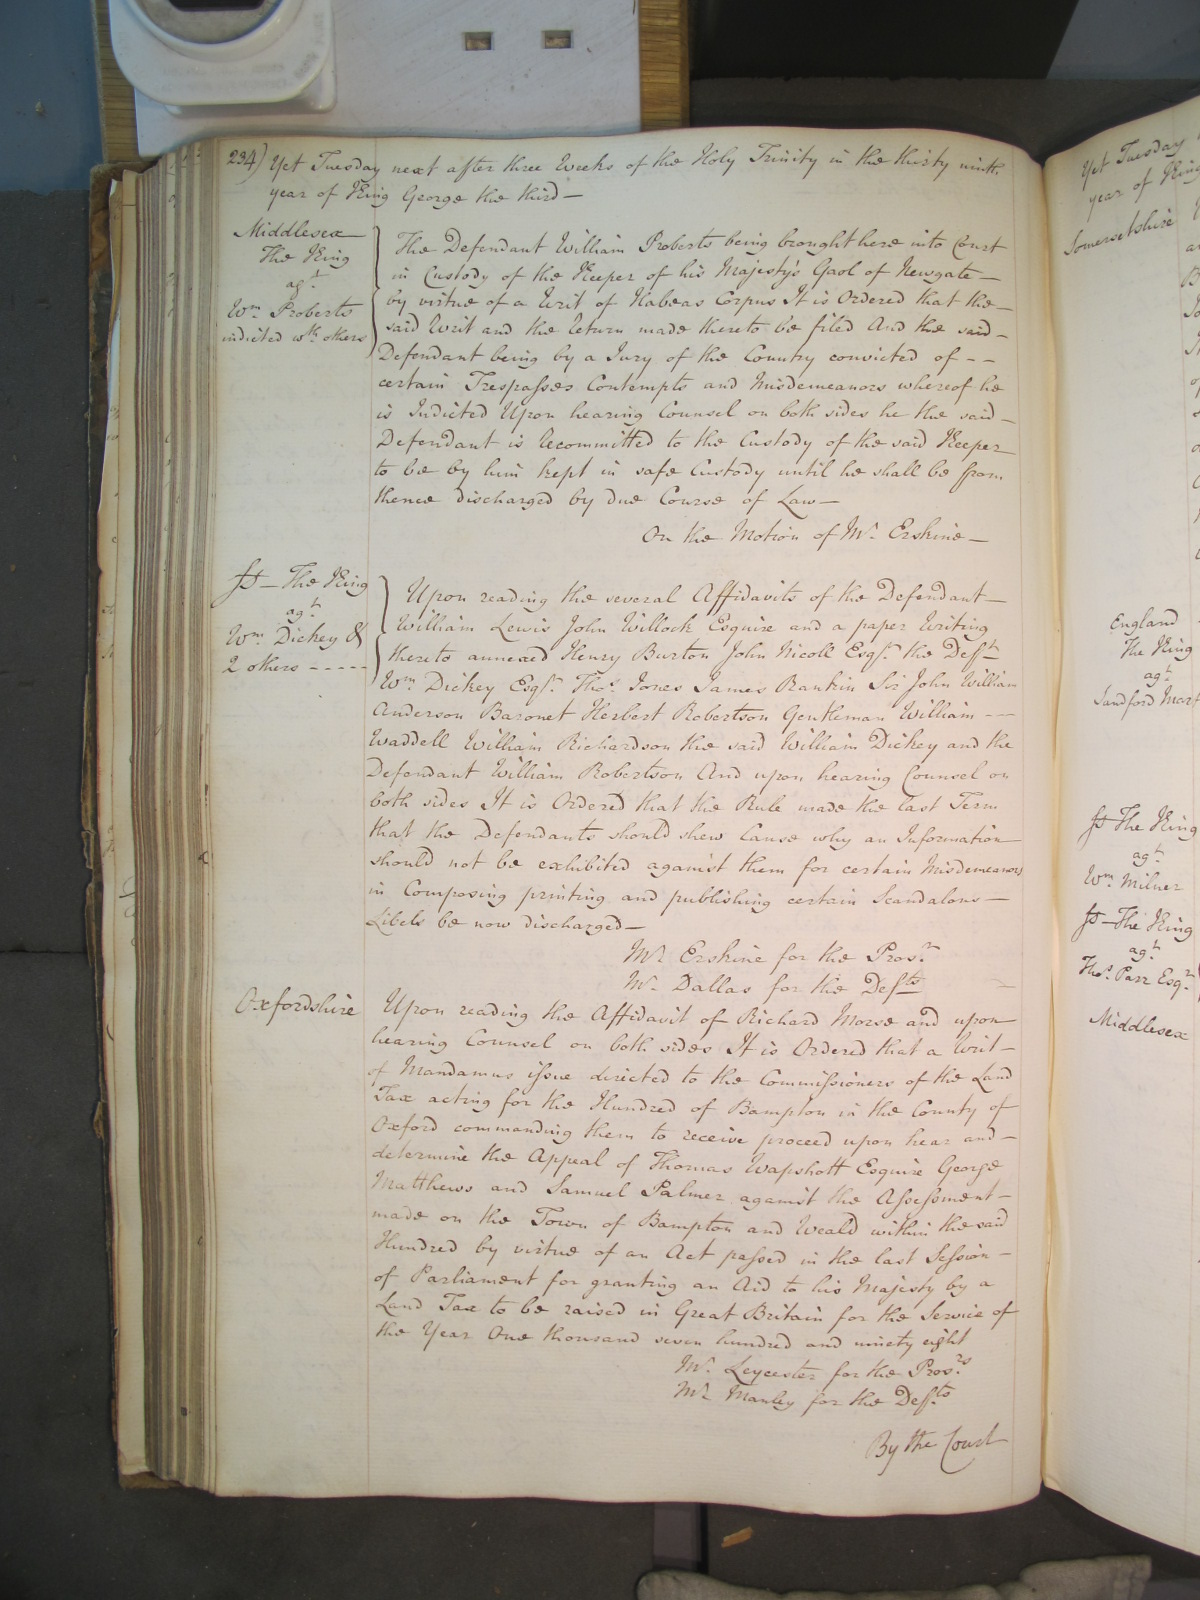 234) Yet Tuesday next after three Weeks of the Holy Trinity in the thirty ninth
year of King George the third —
Middlesex
The King
agt
Wm Roberts
indicted wth others
The Defendant William Roberts being brought here into Court
in Custody of the Keeper of his Majesty's Gaol of Newgate —
by virtue of a Writ of Habeas Corpus It is Ordered that the —
said Writ and the Return made thereto be filed And the said —
Defendant being by a Jury of the Country convicted of - -
certain Trespasses Contempts and Misdemeanors whereof he
is Indicted Upon hearing Counsel on both sides he the said —
Defendant is Recommitted to the Custody of the said Keeper
to be by him kept in safe Custody until he shall be from
thence discharged by due Course of Law —
On the Motion of Mr. Erskine —
The King
agt
Wm Dickey &
2 others - - - - -
Upon reading the several Affidavits of the Defendant —
William Lewis John Willock Esquire and a paper Writing
thereto annexed Henry Burton John Nicoll Esqr. the Deft
Wm Dickey Esqr. Thos. Jones James Rankin Sir John William
Anderson Baronet Herbert Robertson Gentleman William - -
Waddell William Richardson the said William Dickey and the
Defendant William Robertson And upon hearing Counsel on
both sides It is Ordered that the Rule made the last Term
that the Defendants should shew Cause why an Information
should not be exhibited against them for certain Misdemeanors
in Composing printing and publishing certain Scandalous —
Libels be now discharged —
Mr Erskine for the Prosr
Mr. Dallas for the Defts
Oxfordshire
Upon reading the Affidavit of Richard Morse and upon
hearing Counsel on both sides It is Ordered that a Writ —
of Mandamus issue directed to the Commissioners of the Land
Tax acting for the Hundred of Bampton in the County of
Oxford commanding them to receive proceed upon hear and —
determine the Appeal of Thomas Wapshott Esquire George
Matthews and Samuel Palmer against the Assessment —
made on the Town of Bampton and Weald within the said
Hundred by virtue of an Act passed in the last Session —
of Parliament for granting an Aid to his Majesty by a
Land Tax to be raised in Great Britain for the Service of
the Year One thousand seven hundred and ninety eight
Mr. Leycester for the Prosrs
Mr Manley for the Defts
By the Court
Yet Tuesday
year of King
Somersetshire
England
The King
agt
Sandford
The King
agt
Wm Milner
The King
agt
Thos. Parr Esqr.
Middlesex